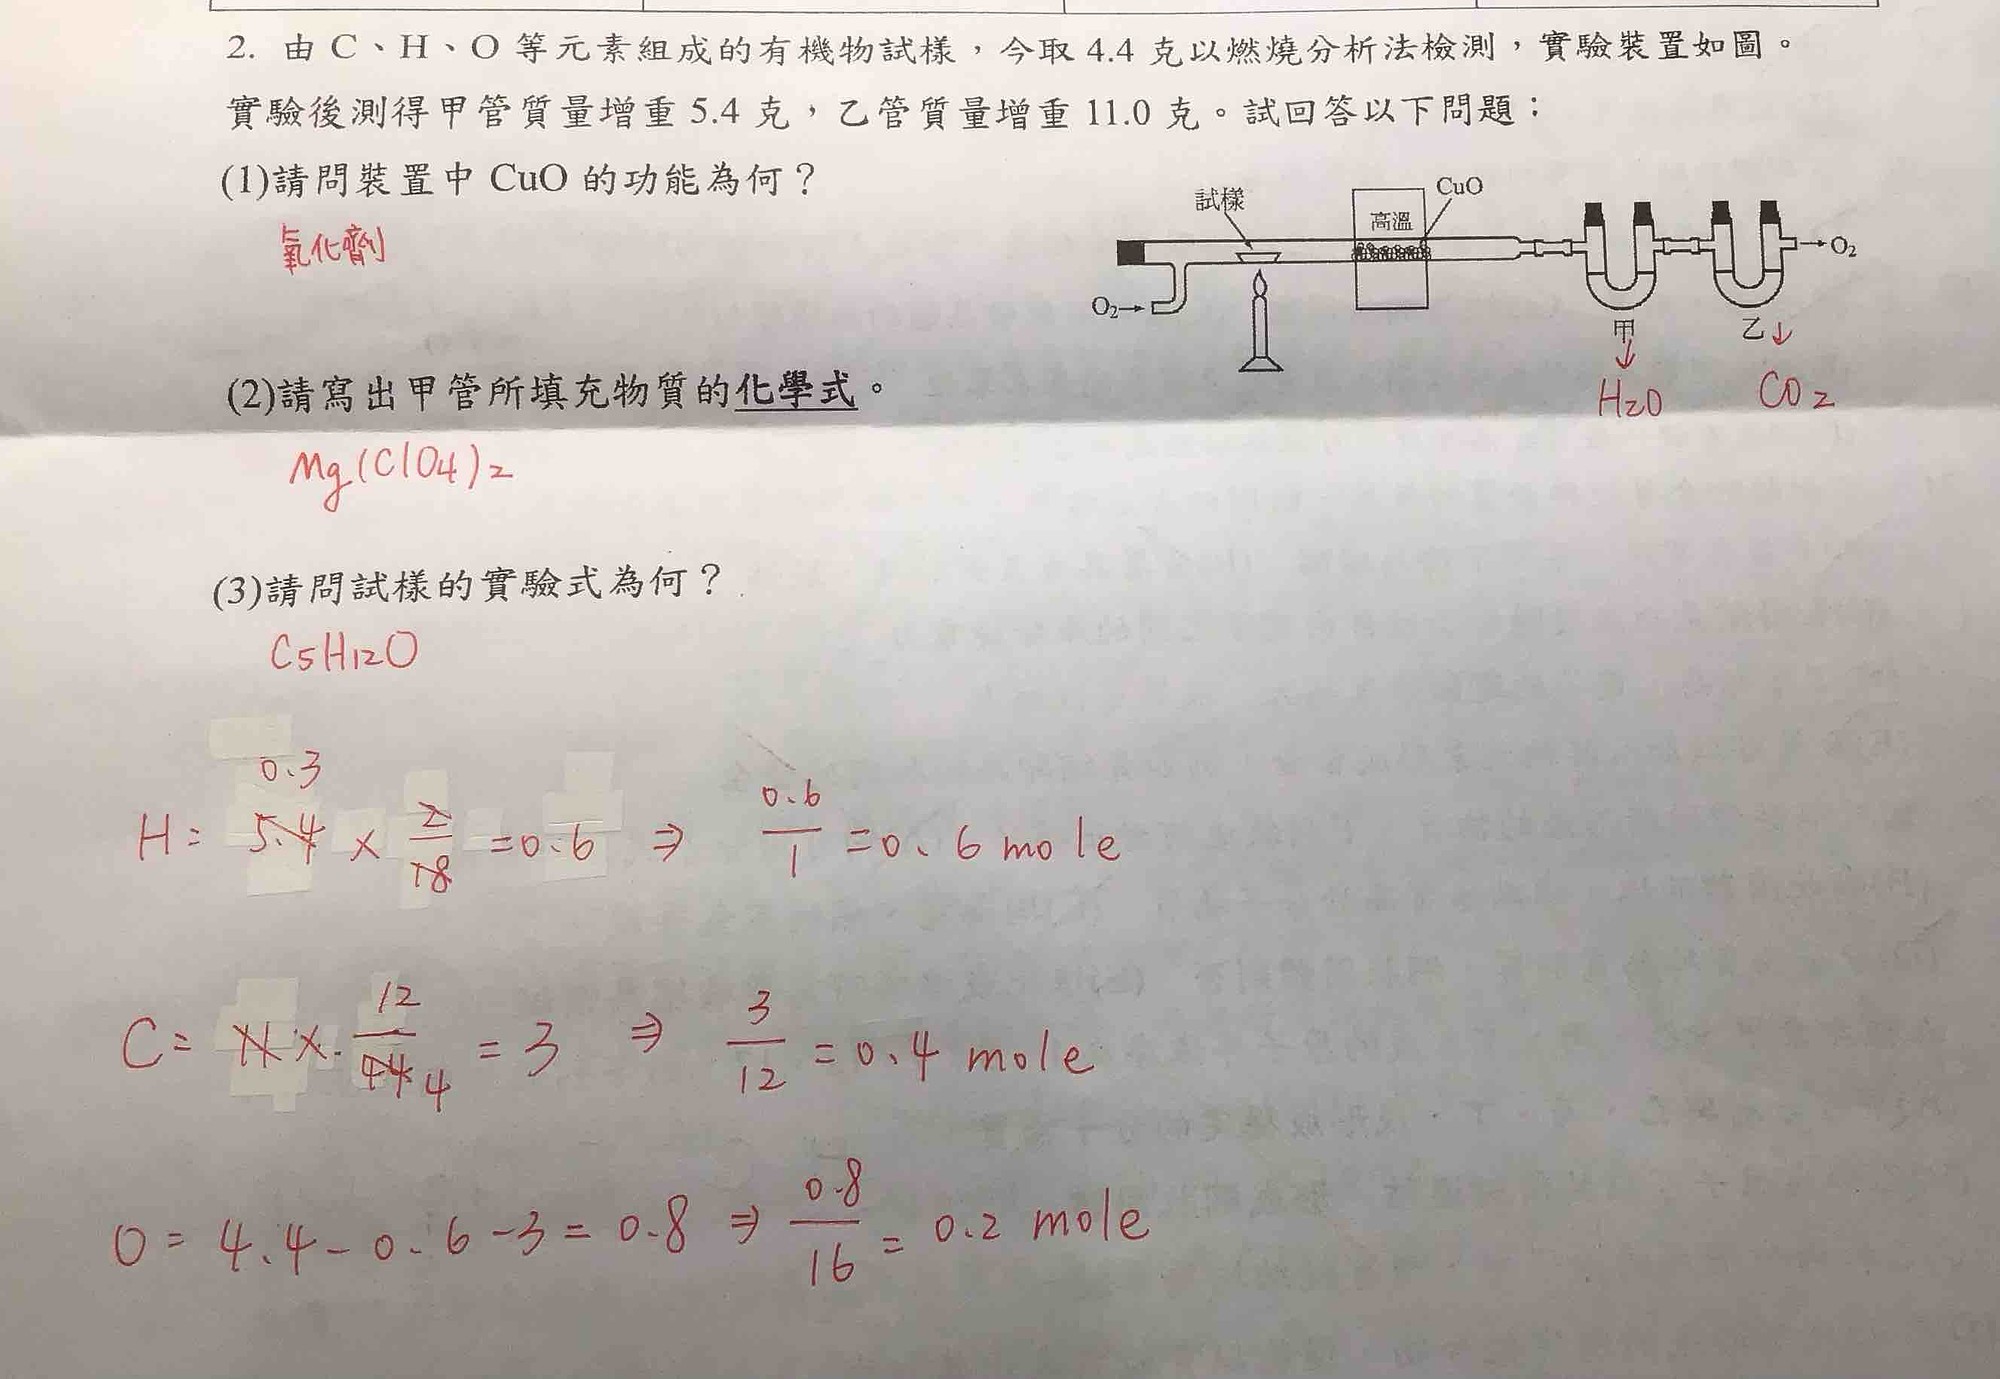 2. 由 C、H、O 等元素組成的有機物試樣，今取 4.4 克以燃燒分析法檢測，實驗裝置如圖。
實驗後測得甲管質量增重 5.4 克，乙管質量增重 11.0 克。試回答以下問題：
(1)請問裝置中 CuO 的功能為何？
氧化劑
試樣
高溫
CuO
O₂→
→O₂
甲
乙↓
↓
H₂O
CO₂
(2)請寫出甲管所填充物質的化學式。
Mg(ClO4)2
(3)請問試樣的實驗式為何？
C5H12O
0.3
H = 5.4 × 2/18 = 0.6 ⇒ 0.6/1 = 0.6 mole
C = 11 × 12/44 4 = 3 ⇒ 3/12 = 0.4 mole
O = 4.4 - 0.6 - 3 = 0.8 ⇒ 0.8/16 = 0.2 mole